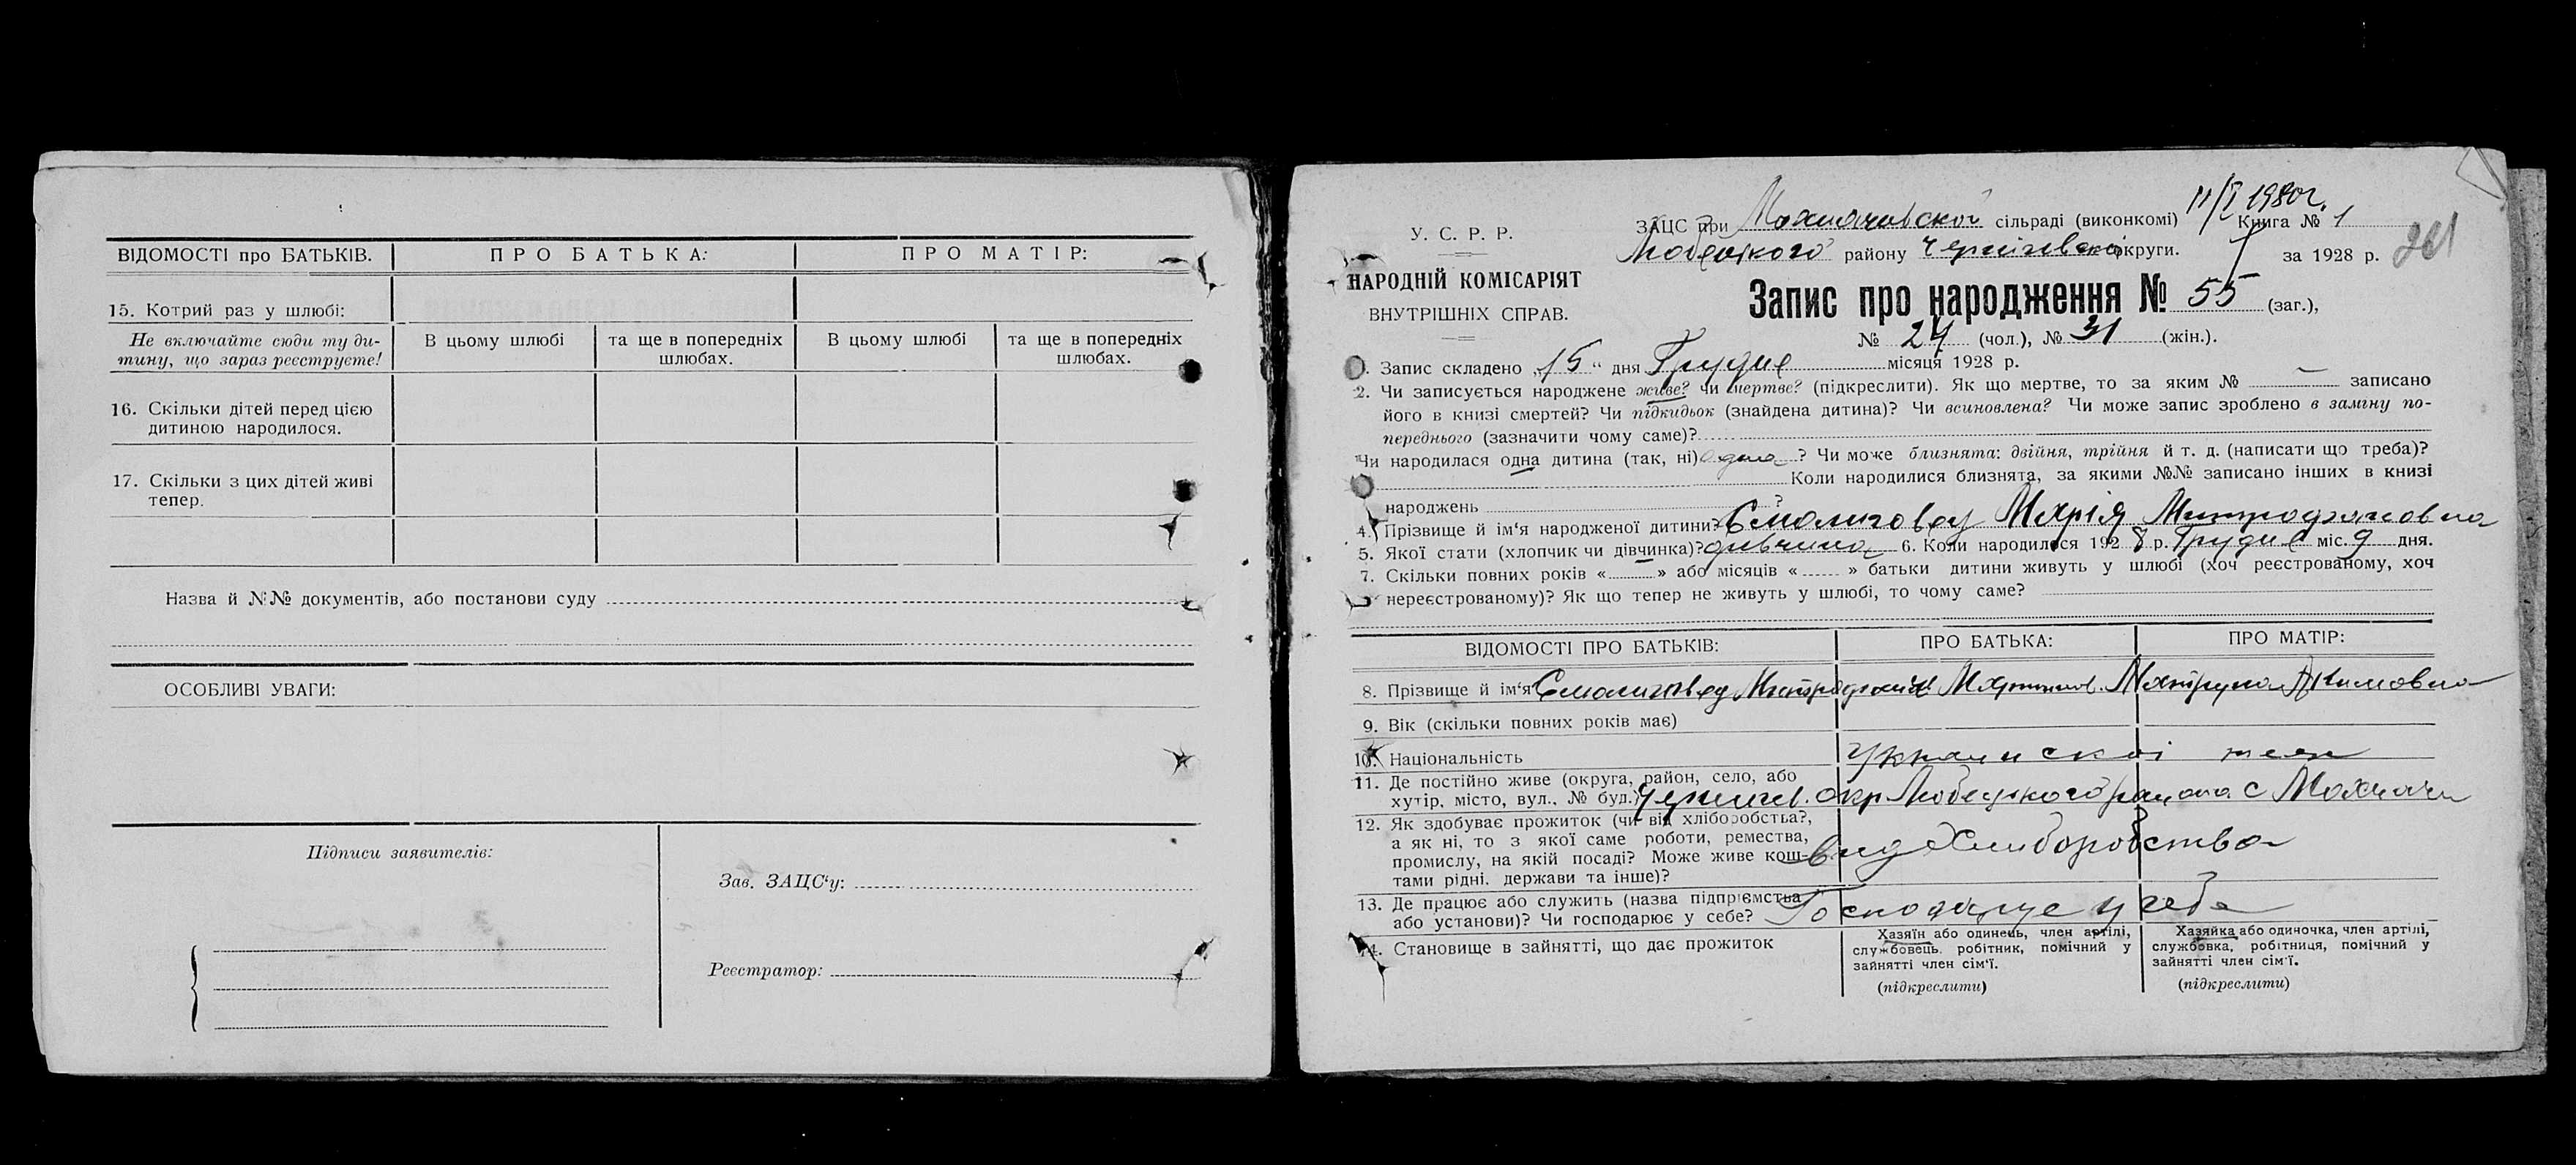 ВІДОМОСТІ про БАТЬКІВ. ПРО БАТЬКА: ПРО МАТІР:
15. Котрий раз у шлюбі:
Не включайте сюди ту ди-
тину, що зараз реєструєте!
В цьому шлюбі
та ще в попередніх
шлюбах.
В цьому шлюбі
та ще в попередніх
шлюбах.
16. Скільки дітей перед цією
дитиною народилося.
17. Скільки з цих дітей живі
тепер.
Назва й №№ документів, або постанови суду
ОСОБЛИВІ УВАГИ:
Підписи заявителів:
Зав. ЗАЦС‘у:
Реєстратор:
11/I 1980г.
У. С. Р. Р.
НАРОДНІЙ КОМІСАРІЯТ
ВНУТРІШНІХ СПРАВ.
ЗАЦС при Мохначовской сільраді (виконкомі) Книга № 1
Любецкого району Чернігівскоі округи. за 1928 р. 261
Запис про народження № 55 (заг.),
№ 24 (чол.), № 31 (жін.).
1. Запис складено „15“ дня Грудня місяця 1928 р.
2. Чи записується народжене живе? чи мертве? (підкреслити). Як що мертве, то за яким № — записано
його в книзі смертей? Чи підкидьок (знайдена дитина)? Чи всиновлена? Чи може запис зроблено в заміну по-
переднього (зазначити чому саме)?
Чи народилася одна дитина (так, ні) одна ? Чи може близнята: двійня, трійня й т. д. (написати що треба)?
Коли народилися близнята, за якими №№ записано інших в книзі
народжень ?
4. Прізвище й ім‘я народженої дитини? Смолиговец Марія Митрофановна
5. Якої стати (хлопчик чи дівчинка)? дивчина 6. Коли народилося 1928 р. Грудня міс. 9 дня.
7. Скільки повних років « » або місяців « » батьки дитини живуть у шлюбі (хоч реєстрованому, хоч
нереєстрованому)? Як що тепер не живуть у шлюбі, то чому саме?
ВІДОМОСТІ ПРО БАТЬКІВ: ПРО БАТЬКА: ПРО МАТІР:
8. Прізвище й ім‘я Смолиговец Митрофан Мартинов. Мотруна Акимовна
9. Вік (скільки повних років має)
10. Національність Украинскоі
11. Де постійно живе (округа, район, село, або
хутір, місто, вул., № буд.) Чернигов. окр Любецького района с Мохначи
12. Як здобуває прожиток (чи від хліборобстьа?,
а як ні, то з якої саме роботи, ремества,
промислу, на якій посаді? Може живе кош-
тами рідні. держави та інше)?
вид Хлиборобства
13. Де працює або служить (назва підприємстьа
або установи)? Чи господарює у себе? Господарує у себе
14. Становище в зайнятті, що дає прожиток
Хазяїн або одинець, член артілі,
службовець. робітник, помічний у
зайнятті член сім‘ї.
(підкреслити)
Хазяйка або одиночка, член артілі,
службовка, робітниця, помічний у
зайнятті член сім‘ї.
(підкреслити)